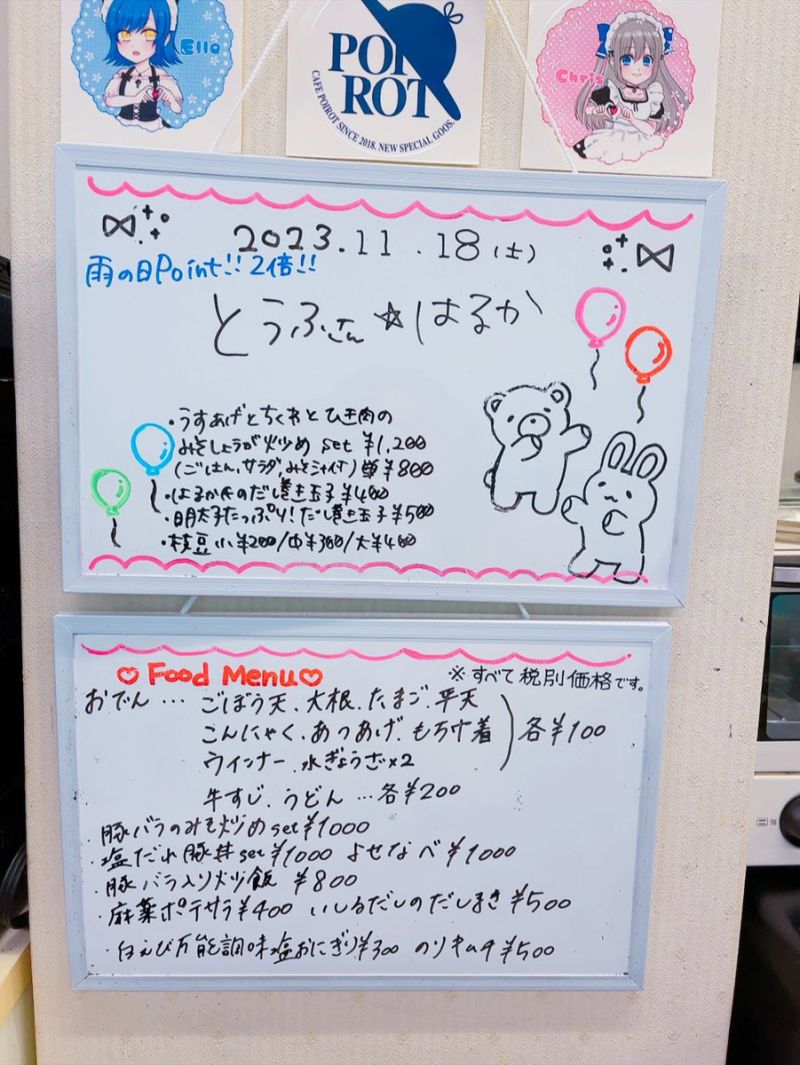 Ello
POI
ROT
CAFE POIROT SINCE 2018. NEW SPECIAL GOOS.
Chris
2023.11.18(土)
雨の日Point!!2倍!!
とうふさん☆はるか
・うすあげとちくわとひき肉の
みそしょうが炒め set ¥1,200
(ごはん,サラダ,みそシャイ付)単¥800
・はるかへのだし巻き玉子¥400
・明太子たっぷり!だし巻き玉子¥500
・枝豆 小¥200/中¥300/大¥400
♡Food Menu♡
※すべて税別価格です。
おでん…ごぼう天、大根、たまご、平天
こんにゃく、あつあげ、もち巾着 各¥100
ウインナー、水ぎょうざ×2
牛すじ、うどん…各¥200
・豚バラのみそ炒めset¥1000
・塩だれ豚丼set¥1000 よせなべ¥1000
・豚バラ入り炒飯 ¥800
・麻薬ポテサラ¥400 いしるだしのだしまき¥500
・白えび万能調味塩おにぎり¥300 のりキムチ¥500